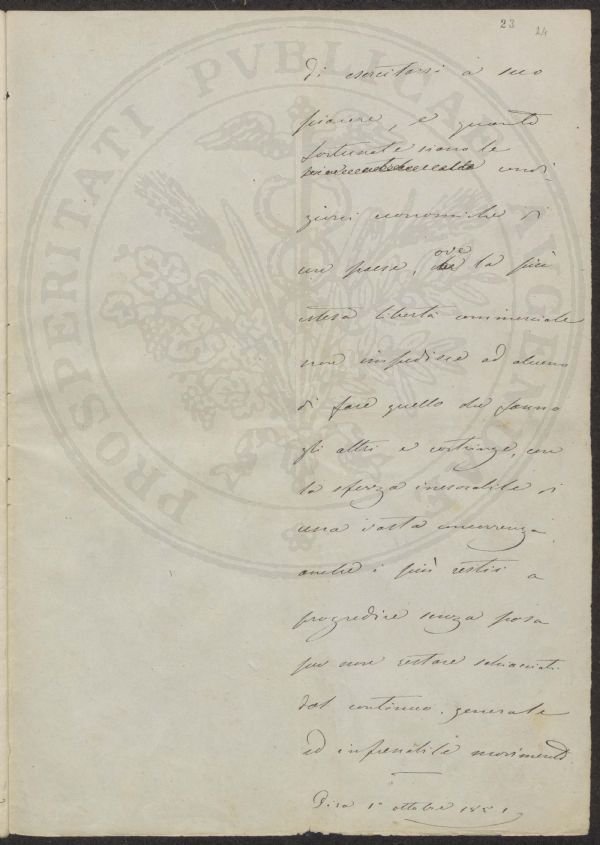 23 24
di esercitarsi a suo
piacere, e quanto
fortunate siano le
condi
zioni economiche di
un paese, ove la più
estesa libertà commerciale
non impedisce ad alcuno
di fare quello che fanno
gli altri e costringe, con
la sferza inesorabile di
una vasta concorrenza
anche i più restii a
progredire senza posa
per non restare schiacciati
dal continuo, generale
ed infrenabile movimento.
Pisa 1° ottobre 1851
PROSPERITATI PVBLICAE AVGENDAE